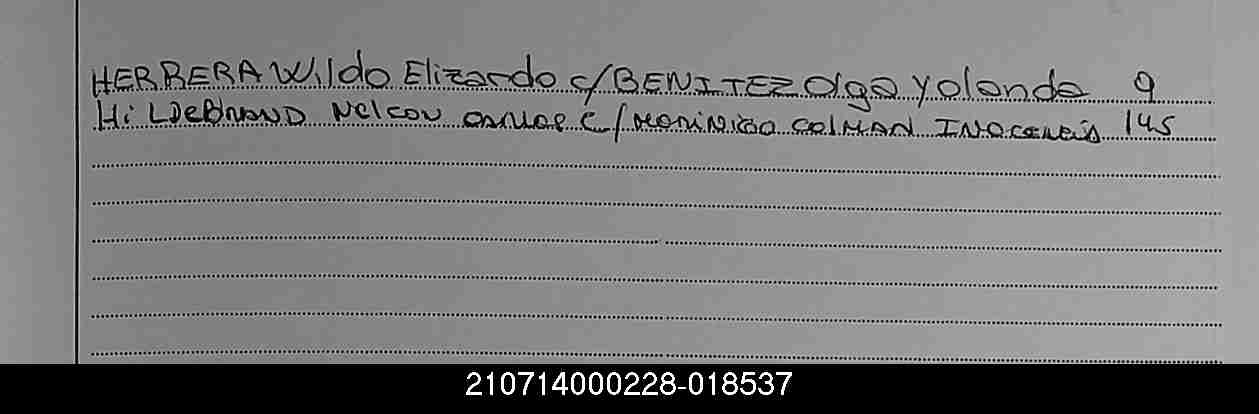 HERRERA Wildo Elizardo c/ BENITEZ Olga Yolanda 9
HiLDeBRAND NelsoN c/ COLMAN INOCENCIA 145
210714000228-018537